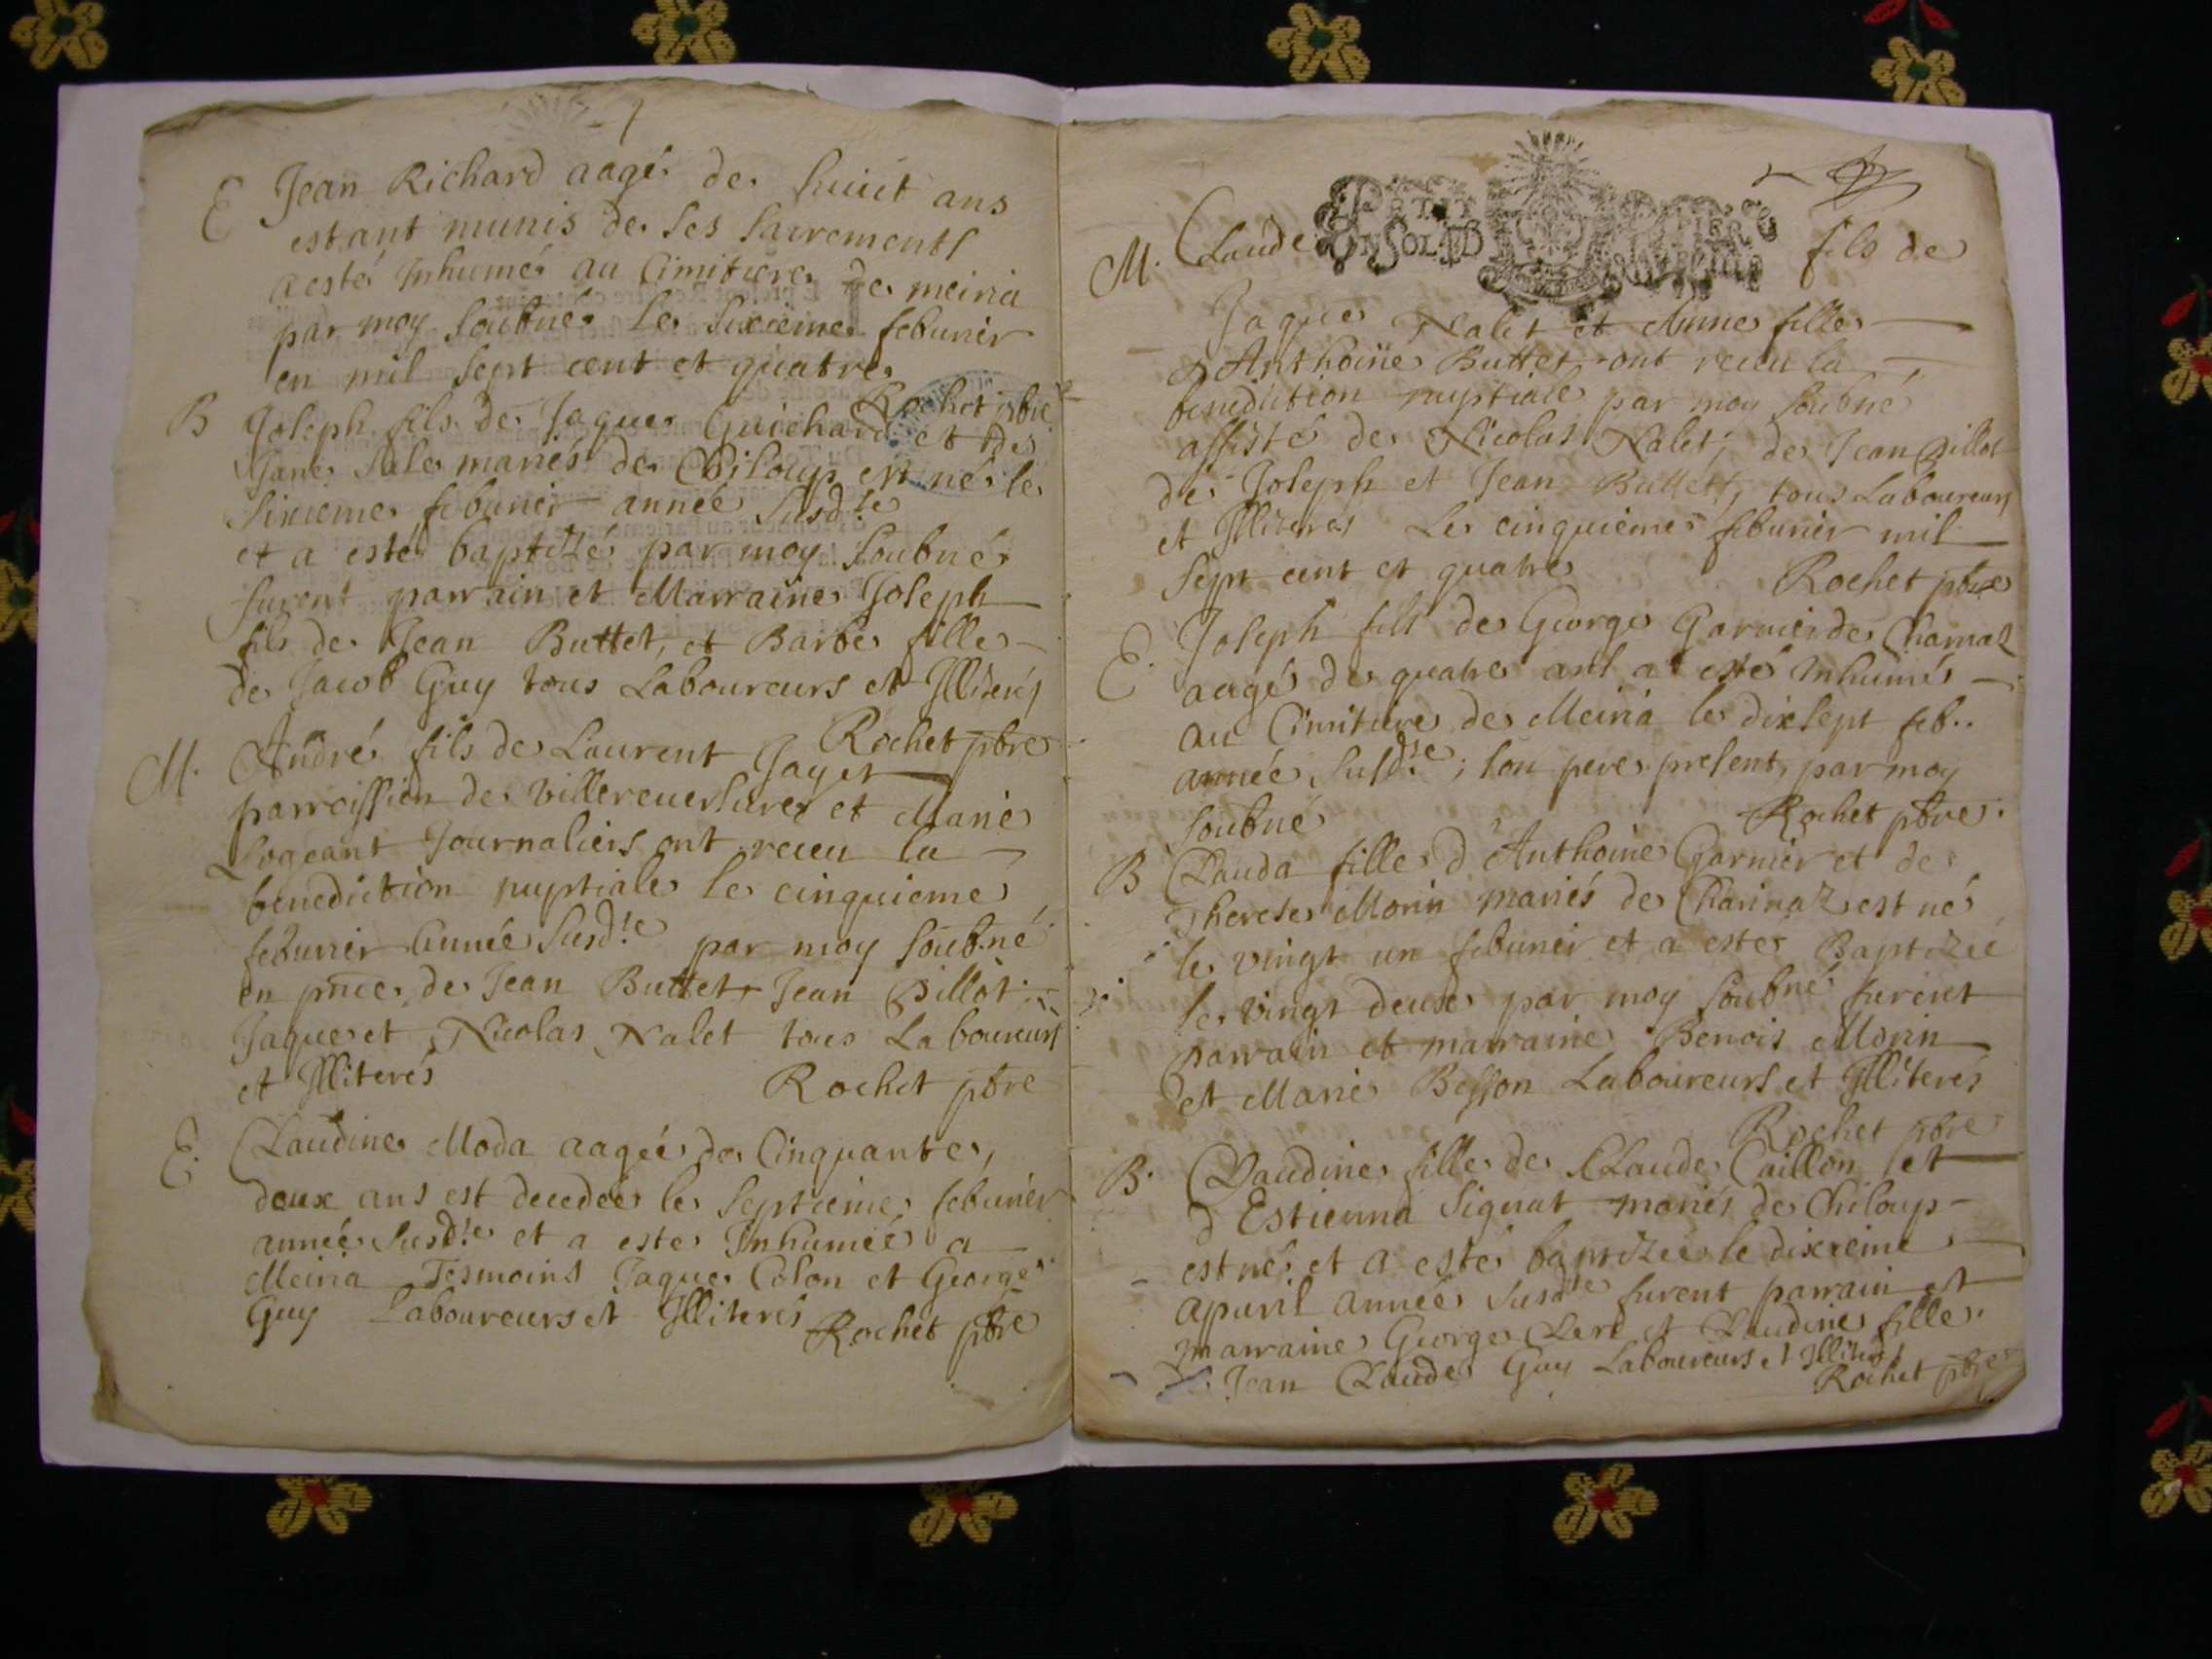 E Jean Richard aagé de huict ans
estant munis de ses sacrements
a esté Inhumé au Cimitiere de meiria
par moy soubné le sixieme feburier
en mil sept cent et quatre
Rochet pbre
B Joseph fils de Jaque Guichard et de
Jane mariés de Chiloup est né le
sixieme feburier année susd.te
et a esté baptizé par moy soubné
furent parrain et Marraine Joseph
fils de Jean Buttet, et Barbe fille
de Jacob Guy tous Laboureurs et Illiterés
Rochet pbre
M. André fils de Laurent Jayet
parroissien de villereuersure et Marie
Logeant Journaliers ont receu la
benediction nuptiale le cinquieme
feburier année susd.te par moy soubné
en pnce de Jean Buttet, Jean Pillot
Jaque et Nicolas Nalet tous Laboureurs
et Illiterés
Rochet pbre
E. Claudine Moda aagée de Cinquante
deux ans est decedée le septieme feburier
année susd.te et a esté Inhumée a
Meiria Tesmoins Jaque Colon et George
Guy Laboureurs et Illiterés
Rochet pbre
PETIT PAPIER
UN SOL
M. Claude fils de
Jaque Nalet et Anne fille
d'Anthoine Buttet ont receu la
benediction nuptiale par moy soubné
assisté de Nicolas Nalet, de Jean Pillot
de Joseph et Jean Buttet, tous Laboureurs
et Illiterés Le cinquieme feburier mil
sept cent et quatre
Rochet pbre
E. Joseph fils de George Garnier de Charnaz
aagé de quatre ans a esté Inhumé
au Cimitiere de Meiria le dixsept feb..
année susd.te; son pere present, par moy
soubné
Rochet pbre.
B Clauda fille d'Anthoine Garnier et de
Therese Morin mariés de Charinaz est né
le vingt un feburier et a esté Baptizée
le vingt deux par moy soubné furent
parrain et marraine Benois Morin
et Marie Besson Laboureurs et Illiterés
Rochet pbre
B. Claudine fille de Claude Caillon et
d'Estienna Signat mariés de Chiloup
est né et a esté baptizée le dixieme
apuril année susd.te furent parrain et
marraine George Clerd et Claudine fille
Jean Claude Guy Laboureurs et Illiterés
Rochet pbre